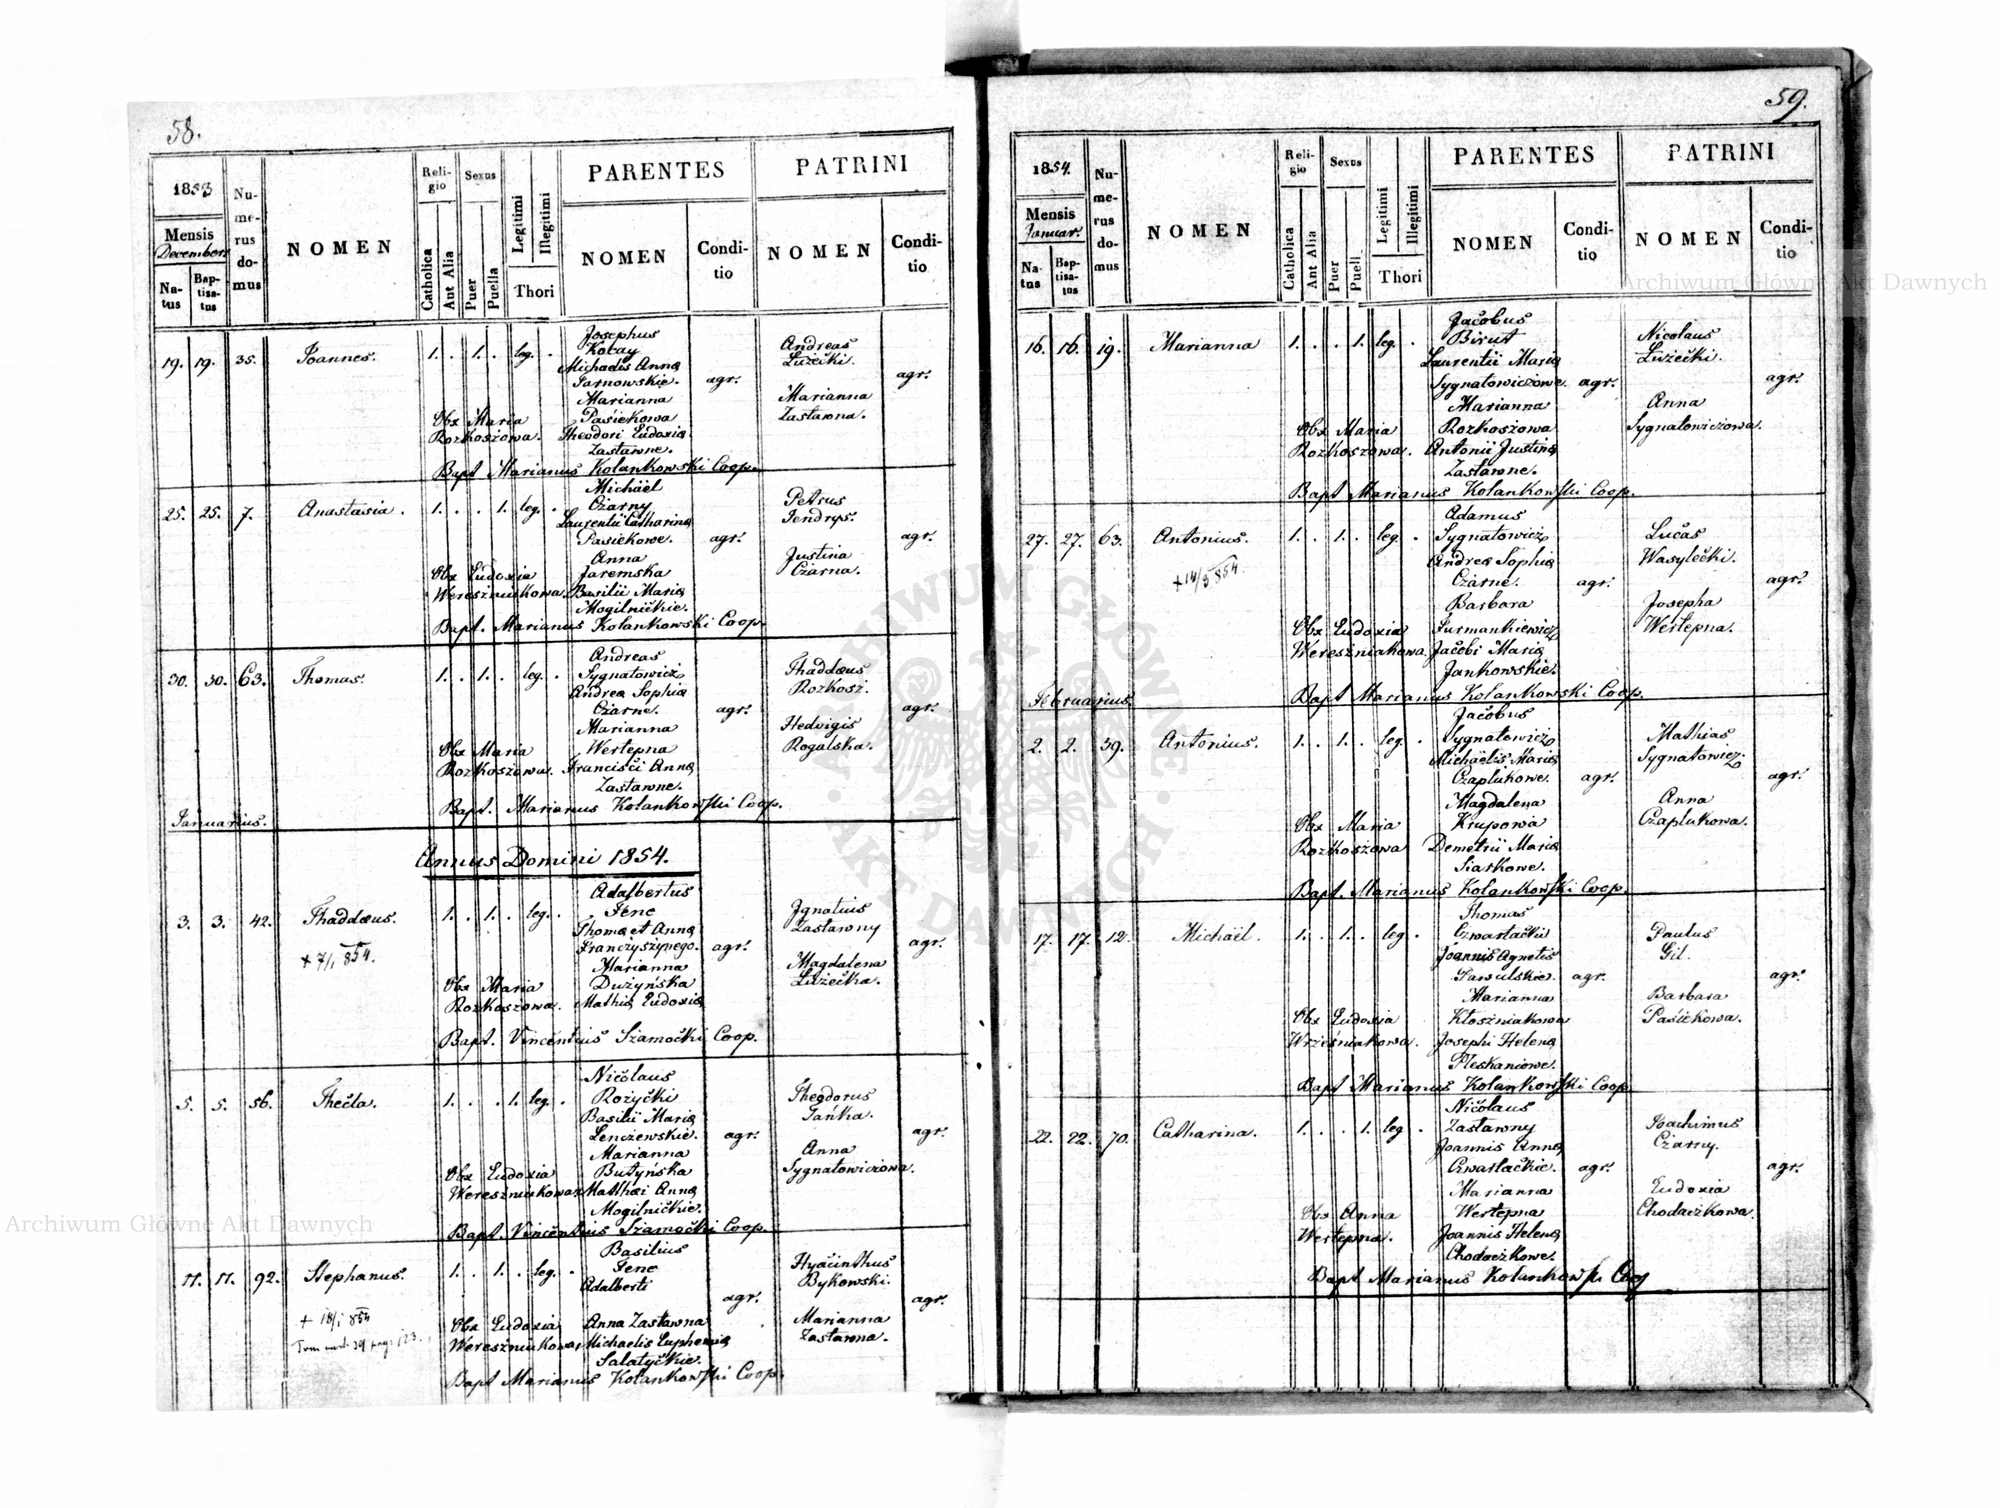 58.
1853
Mensis
Decembris
Natus
Baptisatus
Numerus domus
NOMEN
Religio
Catholica
Aut Alia
Sexus
Puer
Puella
Legitimi
Illegitimi
Thori
PARENTES
NOMEN
Conditio
PATRINI
NOMEN
Conditio
19. 19. 35. Joannes. 1. . 1. . leg. .
Josephus
Michaelis Annæ
Tarnowskie. agr.
Marianna
Pasiekowa
Theodori Eudoxiæ
Zastawne.
Andreas
Łużecki.
Marianna
Zastawna.
agr.
Obx Maria
Rozkoszowa.
Bapt Marianus Kołankowski Coop.
25. 25. 7. Anastasia. 1. . . 1. leg. .
Michael
Czarny
Laurentii Catharinæ
Pasiekowe. agr.
Anna
Jaremska
Basilii Mariæ
Mogilnickie.
Petrus
Jendrys.
Justina
Czarna.
agr.
Obx Eudoxia
Wereszniukowa.
Bapt. Marianus Kołankowski Coop.
30. 30. 63. Thomas. 1. . 1. . leg. .
Andreas
Sygnatowicz
Andreæ Sophiæ
Czarne. agr.
Marianna
Wertepna
Francisci Annæ
Zastawne.
Thaddæus
Rozkosz.
Hedvigis
Rogalska.
agr.
Obx Maria
Rozkoszowa.
Bapt. Marianus Kołankowski Coop.
Januarius.
Annus Domini 1854.
3. 3. 42. Thaddæus. 1. . 1. . leg. .
+ 7/1 854.
Adalbertus
Fenc
Thomæ et Annæ
agr.
Marianna
Dużyńska
Mathiæ Eudoxiæ
Ignatius
Zastawny
Magdalena
Łużecka.
agr.
Obx Maria
Rozkoszowa.
Bapt. Vincentius Szamocki Coop.
5. 5. 56. Thecla. 1. . . 1. leg. .
Nicolaus
Rożycki
Basilii Mariæ
Lenczewskie. agr.
Marianna
Butyńska
Matthæi Annæ
Mogilnickie.
Theodorus
Tańka.
Anna
Sygnatowiczowa.
agr.
Obx Eudoxia
Wereszniukowa.
Bapt. Vincentius Szamocki Coop.
11. 11. 92. Stephanus. 1. . 1. . leg. .
+ 18/1 854
Basilius
Fenc
Adalberti
agr.
Anna Zastawna
Michaelis Euphemiæ
Salatyckie.
Hyacinthus
Bykowski.
Marianna
Zastawna.
agr.
Obx Eudoxia
Wereszniukowa.
Bapt Marianus Kołankowski Coop.
59.
1854.
Mensis
Januar.
Natus
Baptisatus
Numerus domus
NOMEN
Religio
Catholica
Aut Alia
Sexus
Puer
Puell.
Legitimi
Illegitimi
Thori
PARENTES
NOMEN
Conditio
PATRINI
NOMEN
Conditio
16. 16. 19. Marianna 1. . . 1. leg. .
Jacobus
Birut
Laurentii Mariæ
Sygnatowiczowe. agr.
Marianna
Rozkoszowa
Antonii Justinæ
Zastawne.
Nicolaus
Łużecki.
Anna
Sygnatowiczowa.
agr.
Obx Maria
Rozkoszowa.
Bapt Marianus Kołankowski Coop.
27. 27. 63. Antonius. 1. . 1. . leg. .
+14/3 854.
Adamus
Sygnatowicz
Andreæ Sophiæ
Czarne. agr.
Barbara
Furmankiewicz
Jacobi Mariæ
Jankowskie.
Lucas
Wasylecki.
Josepha
Wertepna.
agr.
Obx Eudoxia
Wereszniakowa
Bapt Marianus Kołankowski Coop.
Februarius.
2. 2. 39. Antonius. 1. . 1. . leg. .
Jacobus
Sygnatowicz
Michaelis Mariæ
Czaplukowe. agr.
Magdalena
Krupowa
Demetrii Mariæ
Siarkowe.
Mathias
Sygnatowicz
Anna
Czaplukowa.
agr.
Obx Maria
Rozkoszowa
Bapt. Marianus Kołankowski Coop.
17. 17. 12. Michael. 1. . 1. . leg .
Thomas
Joannis Agnetis
agr.
Marianna
Kłoszniakowa
Josephi Helenæ
Pleskaniowe.
Paulus
Gil.
Barbara
Pasiekowa.
agr.
Obx Eudoxia
Wrześniakowa.
Bapt Marianus Kołankowski Coop.
22. 22. 70. Catharina. 1. . . 1. leg .
Nicolaus
Zastawny
Joannis Annæ
Czwartackie. agr.
Marianna
Wertepna
Joannis Helenæ
Chodaczkowe.
Joachimus
Czarny.
Eudoxia
Chodaczkowa.
agr.
Obx Anna
Wertepna.
Bapt Marianus Kołankowski Coop
Archiwum Główne Akt Dawnych
Archiwum Główne Akt Dawnych
ARCHIWUM GŁÓWNE · AKT DAWNYCH ·